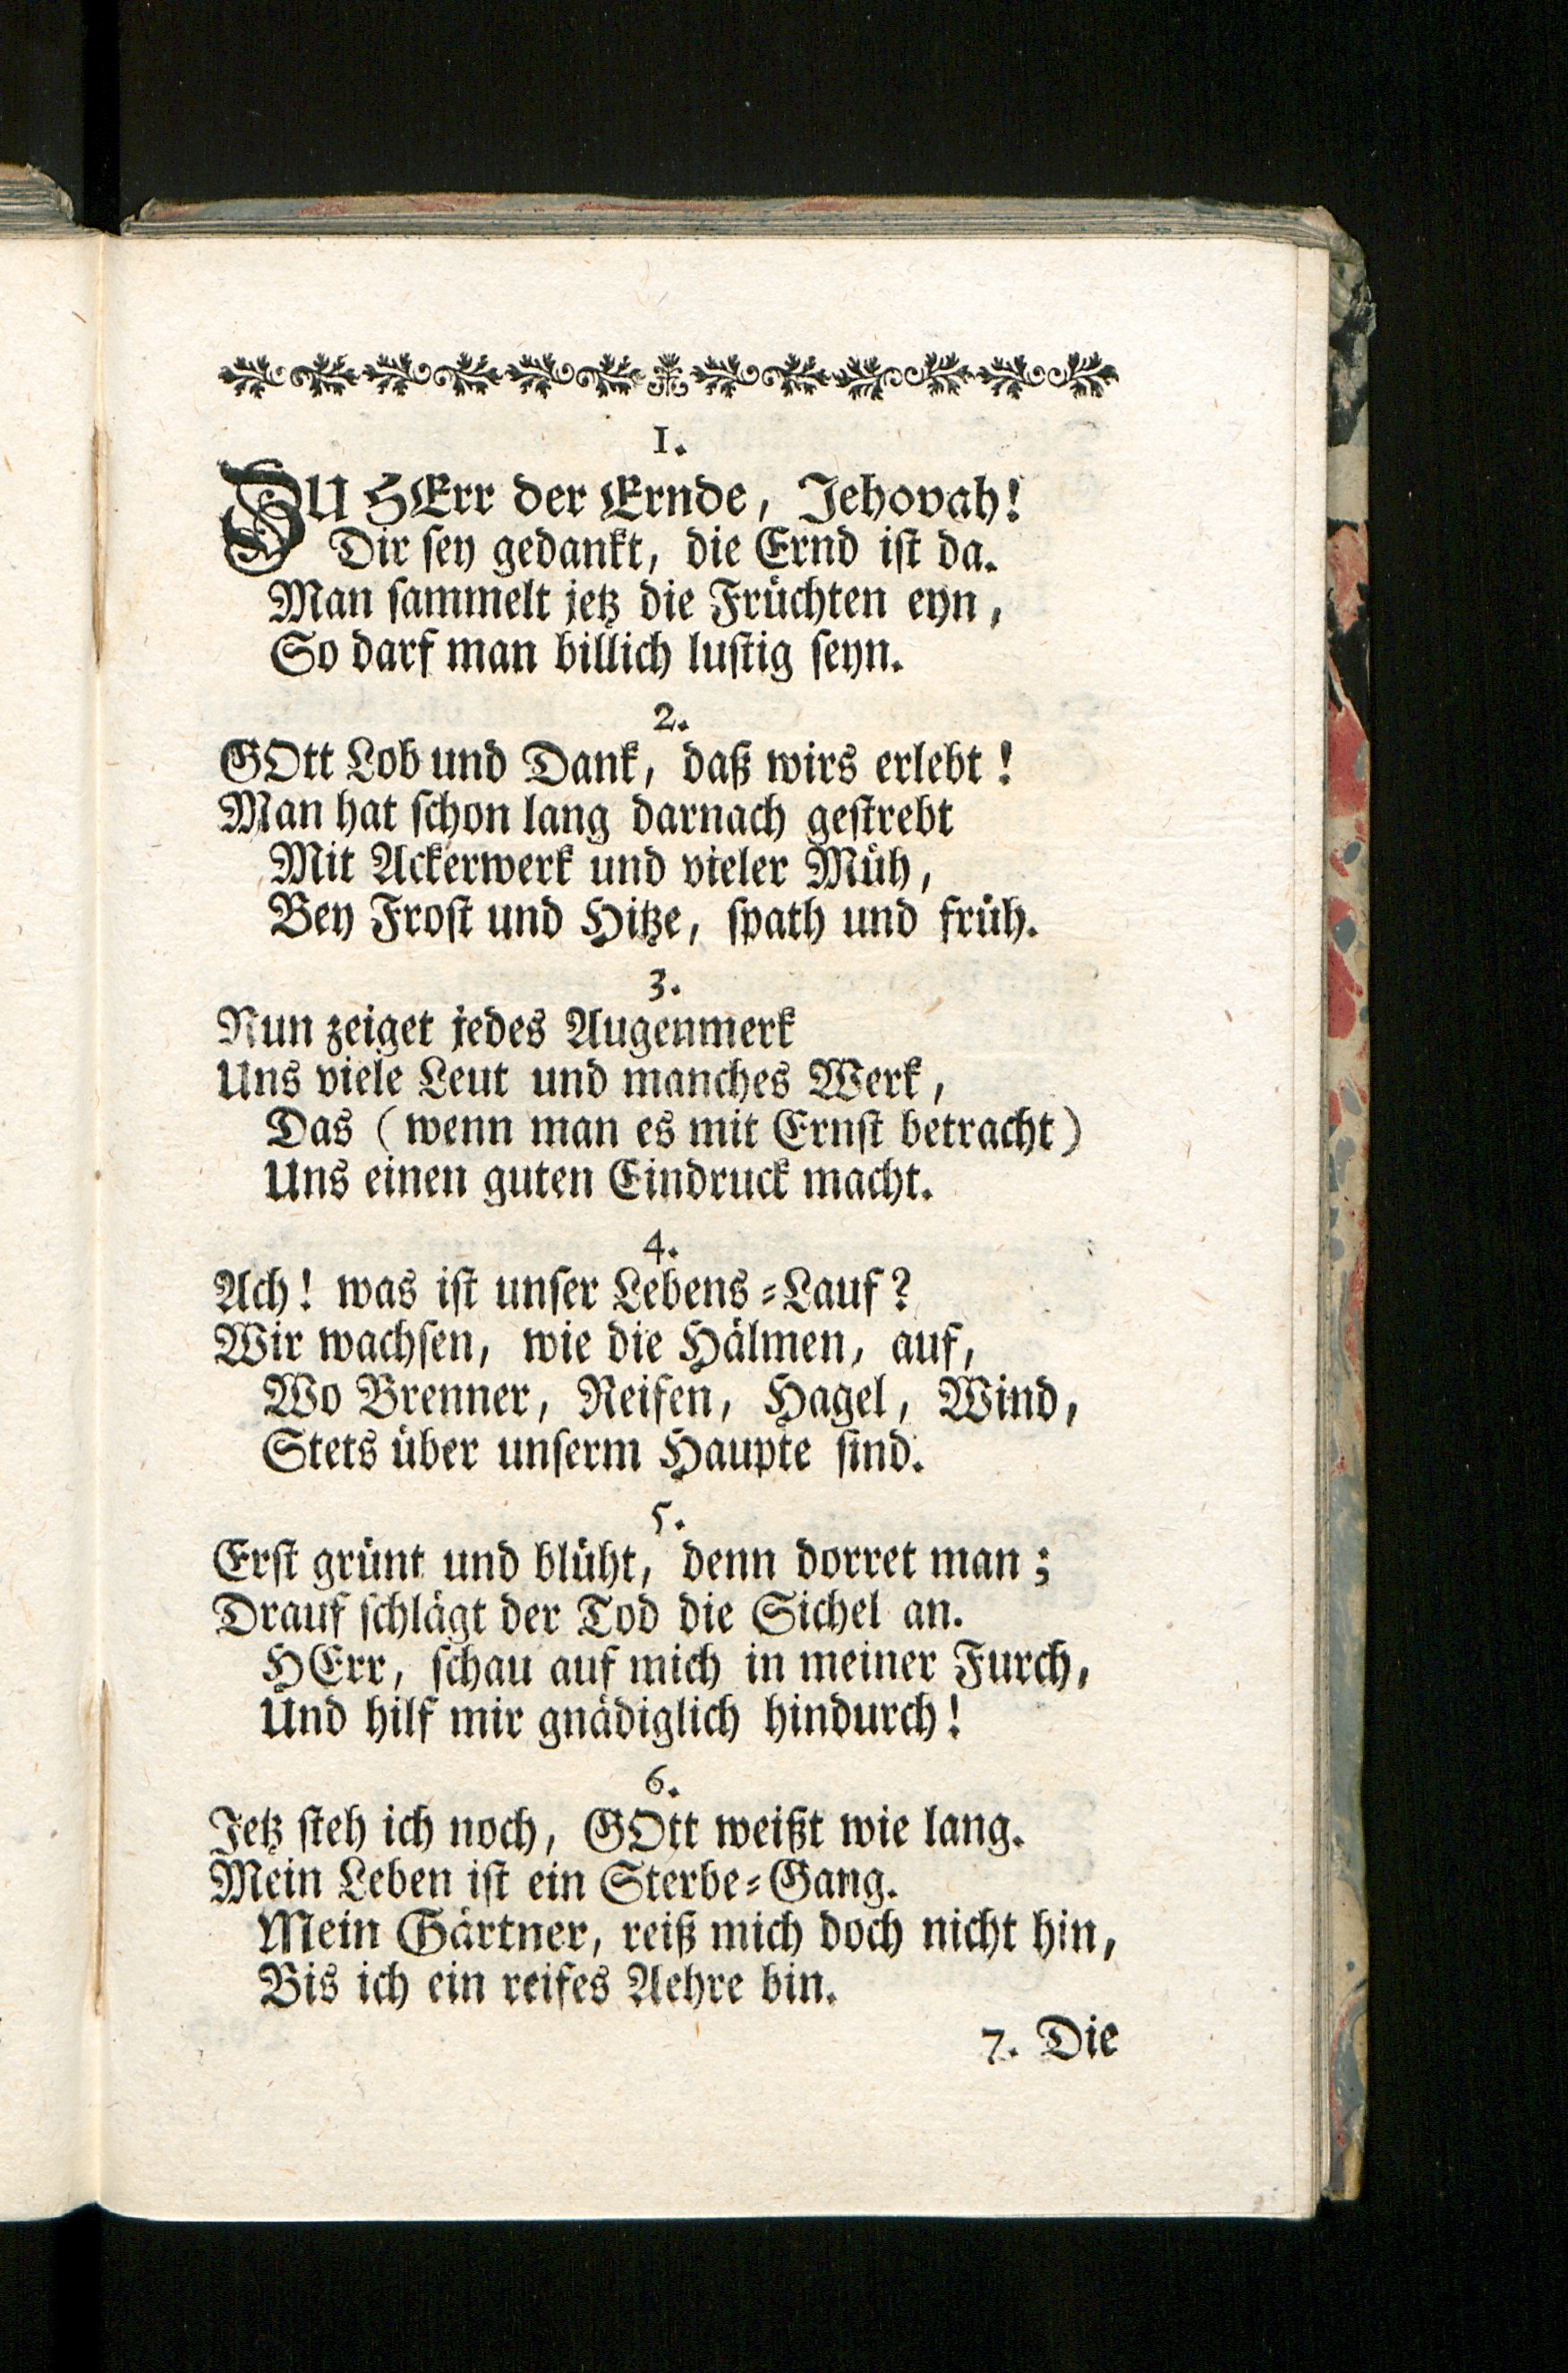 1.
DU HErr der Ernde, Jehovah!
Dir ſey gedankt, die Ernd iſt da.
Man ſammelt jetz die Früchten eyn,
So darf man billich luſtig ſeyn.
2.
GOtt Lob und Dank, daß wirs erlebt!
Man hat ſchon lang darnach geſtrebt
Mit Ackerwerk und vieler Müh,
Bey Froſt und Hitze, ſpath und früh.
3.
Nun zeiget jedes Augenmerk
Uns viele Leut und manches Werk,
Das (wenn man es mit Ernſt betracht)
Uns einen guten Eindruck macht.
4.
Ach! was iſt unſer Lebens⸗Lauf?
Wir wachſen, wie die Hälmen, auf,
Wo Brenner, Reifen, Hagel, Wind,
Stets über unſerm Haupte ſind.
5.
Erſt grünt und blüht, denn dorret man;
Drauf ſchlägt der Tod die Sichel an.
HErr, ſchau auf mich in meiner Furch,
Und hilf mir gnädiglich hindurch!
6.
Jetz ſteh ich noch, GOtt weißt wie lang.
Mein Leben iſt ein Sterbe⸗Gang.
Mein Gärtner, reiß mich doch nicht hin,
Bis ich ein reifes Aehre bin.
7. Die